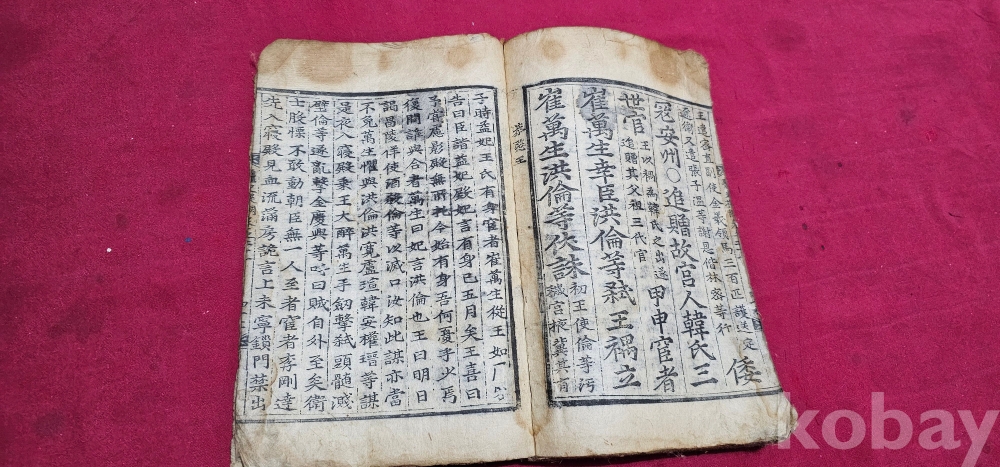 王遣密直副使金義領馬二百匹護送定
遼衛又遣張子溫等謝恩偕林密等行
倭
寇安州〇追贈故宮人韓氏三
世官
王以禑爲韓氏之出遂
追贈其父祖三代官
甲申宦者
崔萬生幸臣洪倫等弑王禑立
崔萬生洪倫等伏誅
初王使倫等汚
穢宮掖冀其有
恭愍王
子時益妃王氏有身宦者崔萬生從王如厠密
告曰臣詣益妃殿妃言有身已五月矣王喜曰
予嘗慮影殿無所托今始有身吾何憂乎少焉
復問誰與合者萬生曰妃言洪倫也王曰明日
謁昌陵佯使酒殺倫等以滅口汝知此謀亦當
不免萬生懼與洪倫洪寬盧瑄韓安權瑨等謀
是夜入寢殿乘王大醉萬生手劒擊弑頭髓濺
壁倫等遂亂擊金慶興等呼曰賊自外至矣衛
士股慄不敢動朝臣無一人至者宦者李剛達
先入寢殿見血流滿房詭言上未寧鎖門禁出
kobay